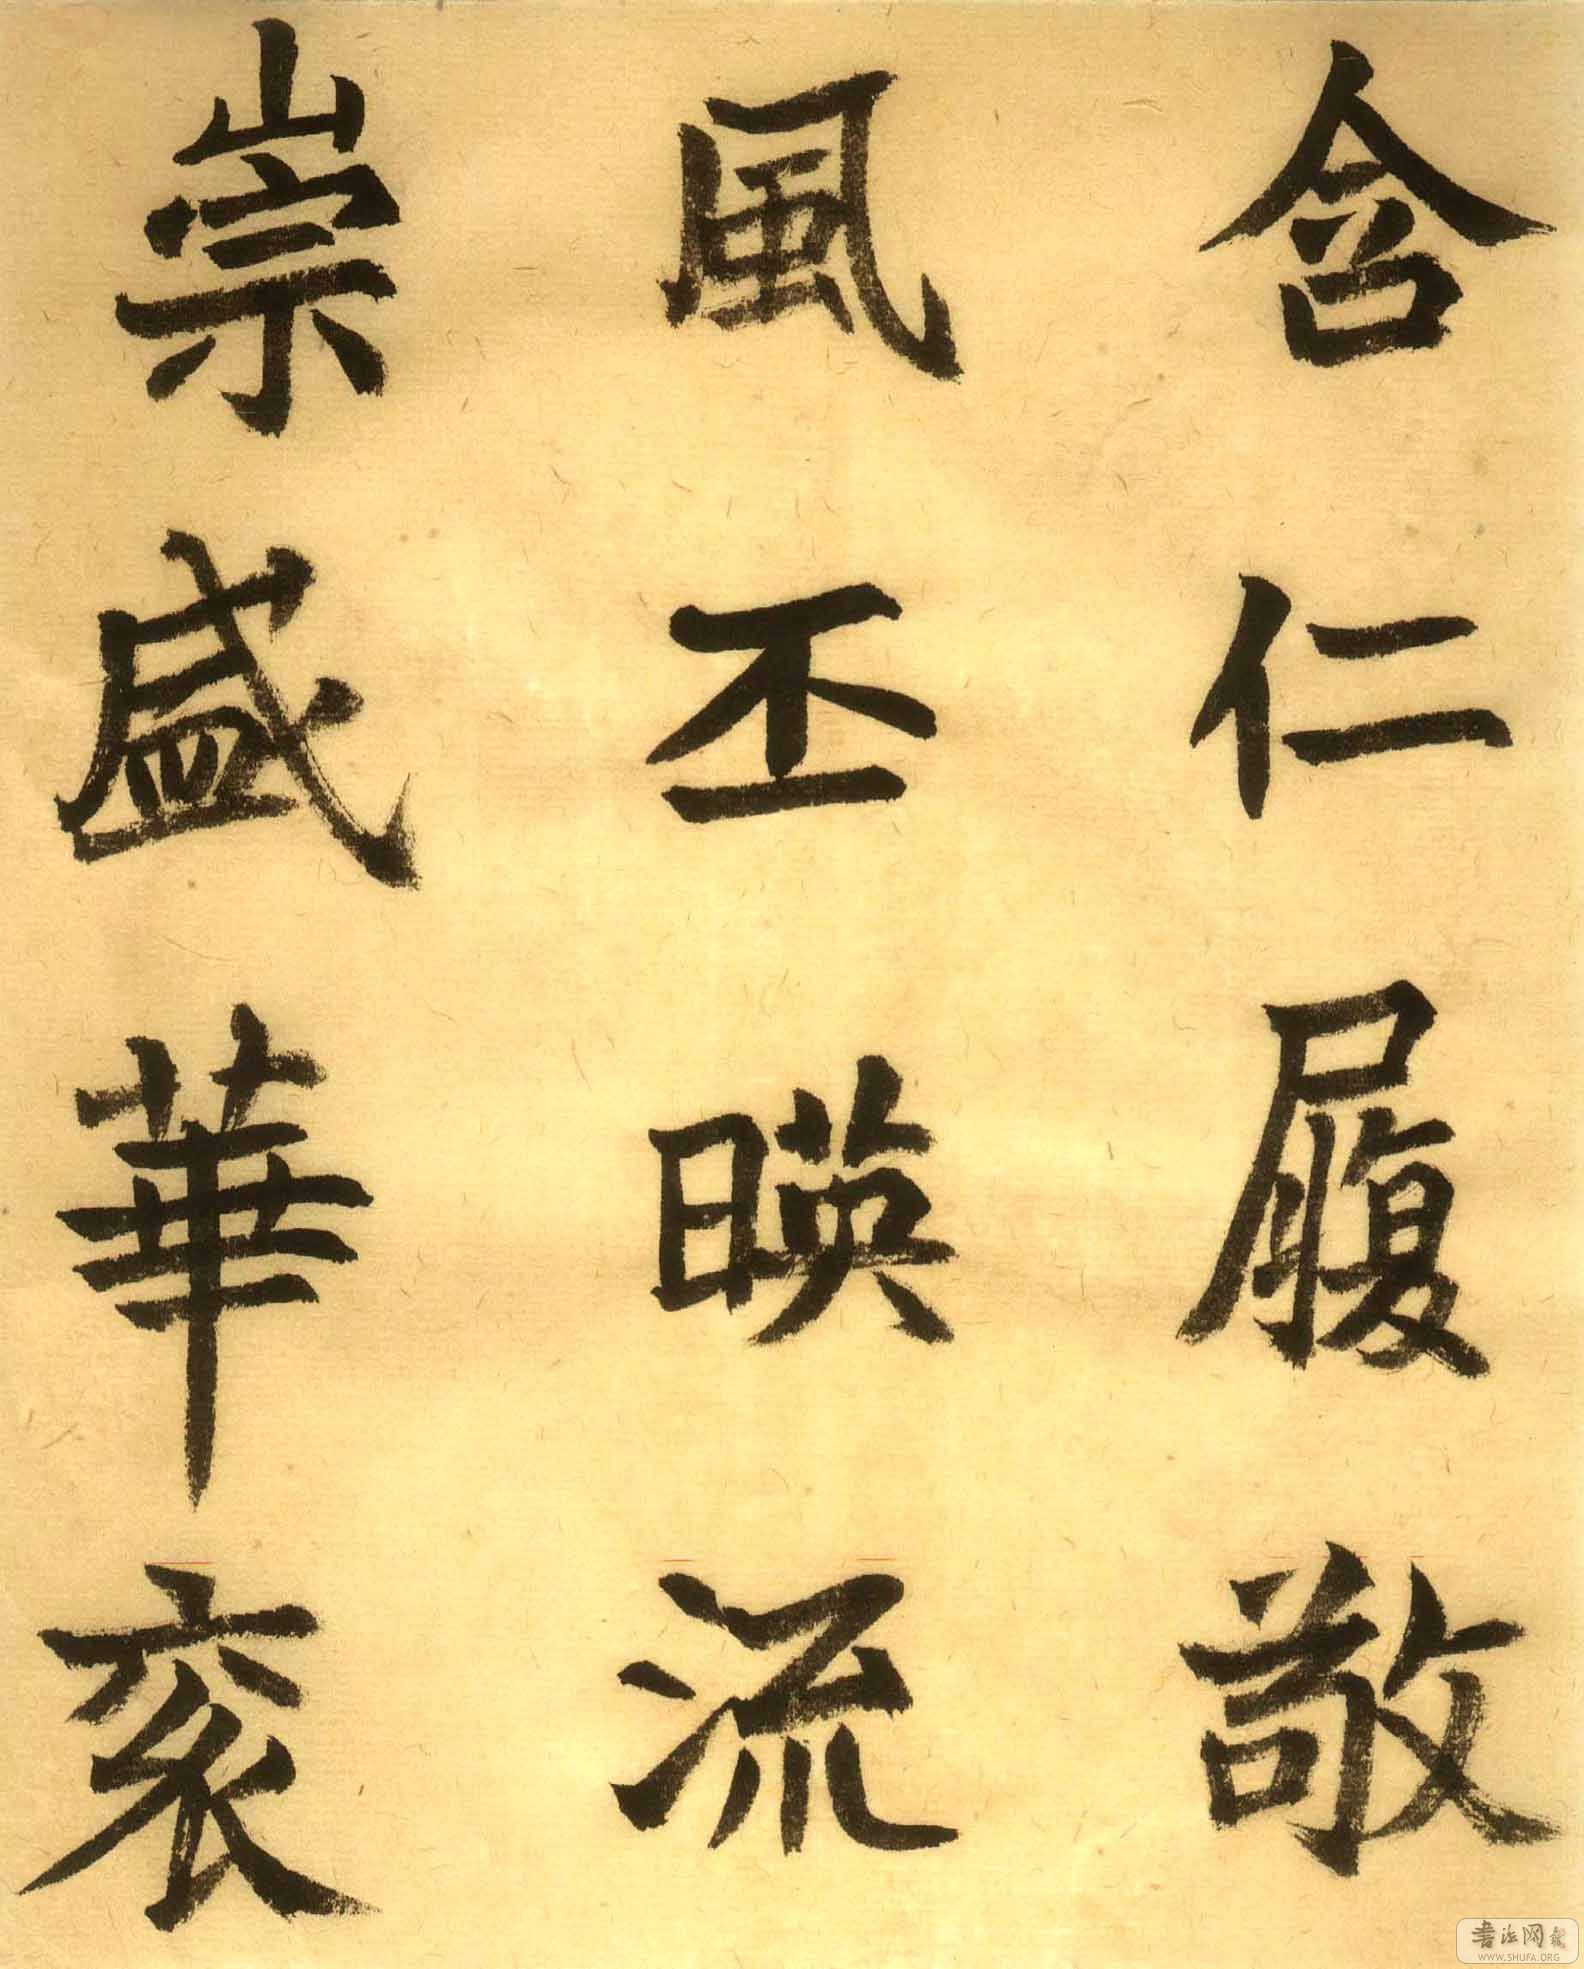 含仁履敬
風丕暎流
崇盛華衮
書法网
WWW.SHUFA.ORG